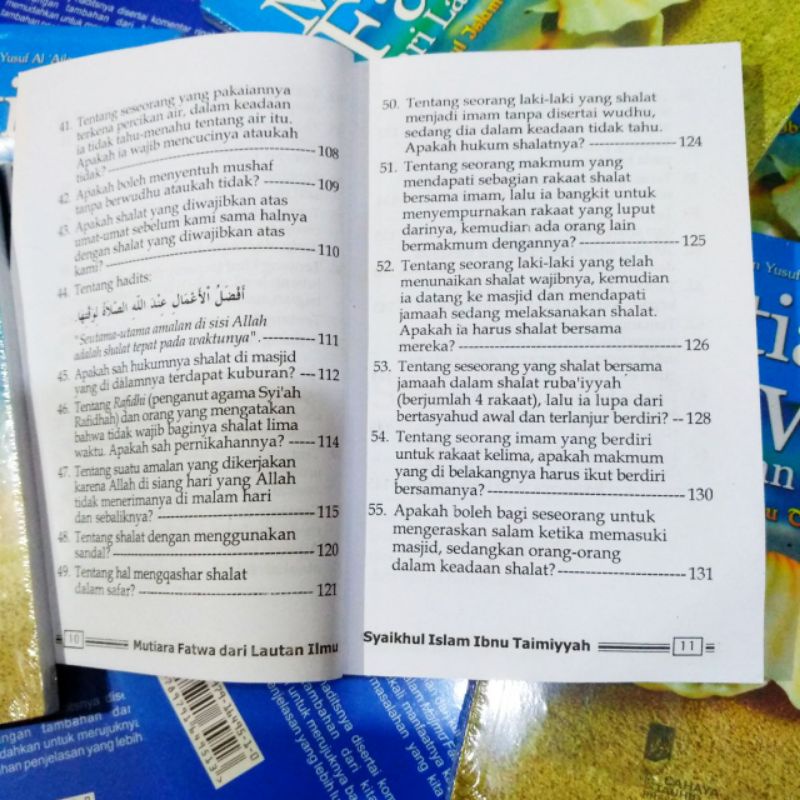 41. Tentang seseorang yang pakaiannya
terkena percikan air, dalam keadaan
ia tidak tahu-menahu tentang air itu.
Apakah ia wajib mencucinya ataukah
tidak? 108
42. Apakah boleh menyentuh mushaf
tanpa berwudhu ataukah tidak? 109
43. Apakah shalat yang diwajibkan atas
umat-umat sebelum kami sama halnya
dengan shalat yang diwajibkan atas
kami? 110
44. Tentang hadits:
أَفْضَلُ الْأَعْمَالِ عِنْدَ اللَّهِ الصَّلَاةُ لِوَقْتِهَا
"Seutama-utama amalan di sisi Allah
adalah shalat tepat pada waktunya". 111
45. Apakah sah hukumnya shalat di masjid
yang di dalamnya terdapat kuburan? --- 112
46. Tentang Rafidhi (penganut agama Syi'ah
Rafidhah) dan orang yang mengatakan
bahwa tidak wajib baginya shalat lima
waktu. Apakah sah pernikahannya? ----- 114
47. Tentang suatu amalan yang dikerjakan
karena Allah di siang hari yang Allah
tidak menerimanya di malam hari
dan sebaliknya? 115
48. Tentang shalat dengan menggunakan
sandal? 120
49. Tentang hal mengqashar shalat
dalam safar? 121
10 Mutiara Fatwa dari Lautan Ilmu
50. Tentang seorang laki-laki yang shalat
menjadi imam tanpa disertai wudhu,
sedang dia dalam keadaan tidak tahu.
Apakah hukum shalatnya? 124
51. Tentang seorang makmum yang
mendapati sebagian rakaat shalat
bersama imam, lalu ia bangkit untuk
menyempurnakan rakaat yang luput
darinya, kemudian ada orang lain
bermakmum dengannya? 125
52. Tentang seorang laki-laki yang telah
menunaikan shalat wajibnya, kemudian
ia datang ke masjid dan mendapati
jamaah sedang melaksanakan shalat.
Apakah ia harus shalat bersama
mereka? 126
53. Tentang seseorang yang shalat bersama
jamaah dalam shalat ruba'iyyah
(berjumlah 4 rakaat), lalu ia lupa dari
bertasyahud awal dan terlanjur berdiri? -- 128
54. Tentang seorang imam yang berdiri
untuk rakaat kelima, apakah makmum
yang di belakangnya harus ikut berdiri
bersamanya? 130
55. Apakah boleh bagi seseorang untuk
mengeraskan salam ketika memasuki
masjid, sedangkan orang-orang
dalam keadaan shalat? 131
Syaikhul Islam Ibnu Taimiyyah 11
Yusuf Al
haditsnya disertai komentar
Yusuf
CAHAYA